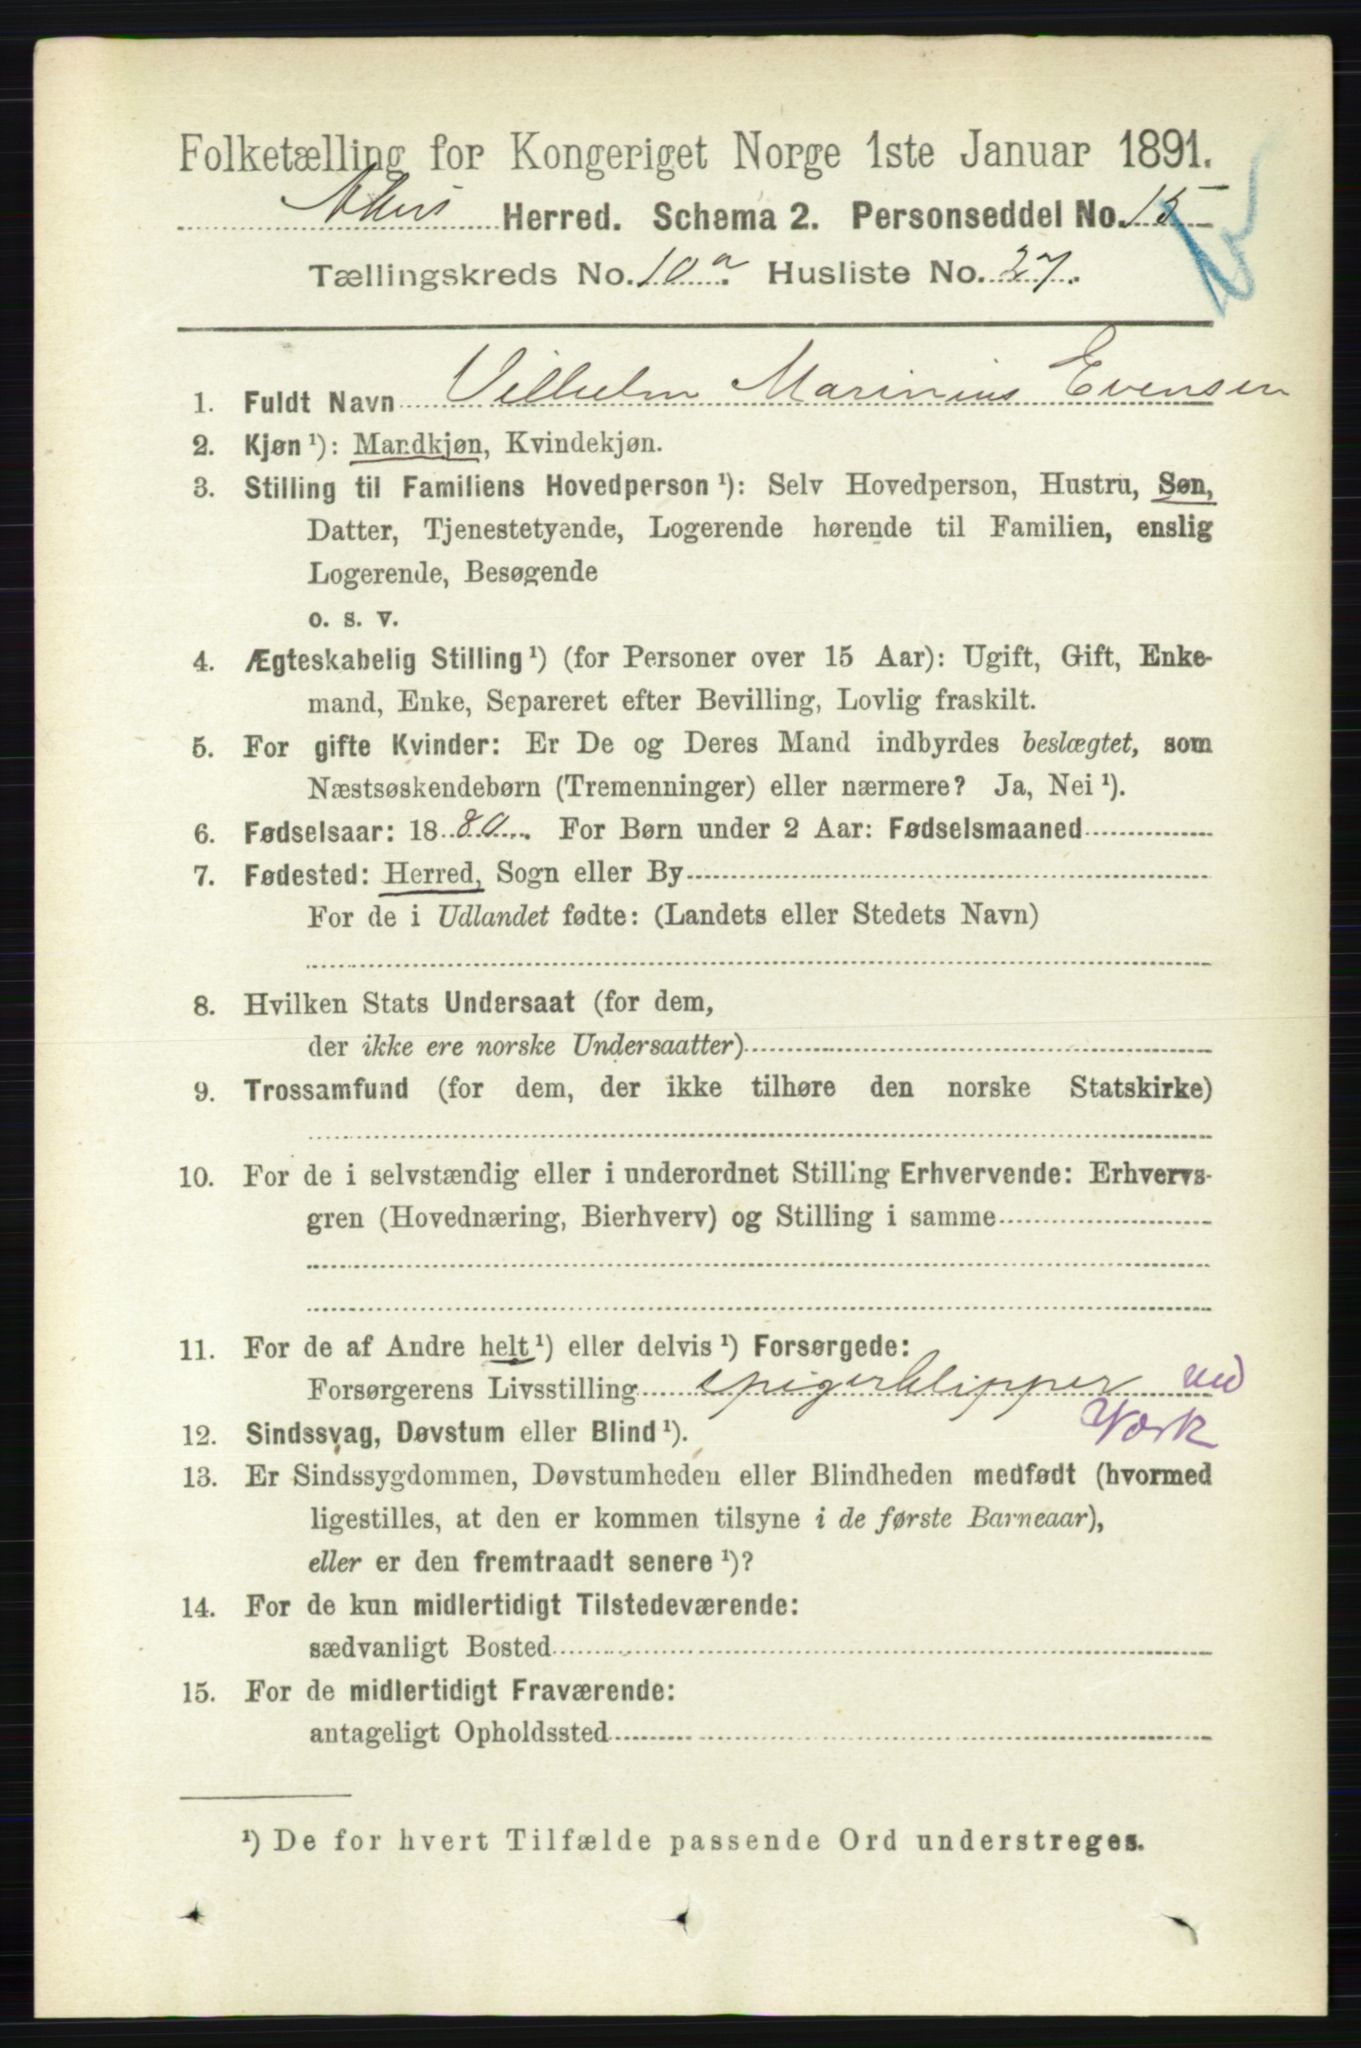 Folketælling for Kongeriget Norge 1ste Januar 1891.
Akers Herred. Schema 2. Personseddel No. 15
Tællingskreds No. 10a. Husliste No. 27.
1. Fuldt Navn Vilhelm Marinius Evensen
2. Kjøn ¹): Mandkjøn, Kvindekjøn.
3. Stilling til Familiens Hovedperson ¹): Selv Hovedperson, Hustru, Søn,
Datter, Tjenestetyende, Logerende hørende til Familien, enslig
Logerende, Besøgende
o. s. v.
4. Ægteskabelig Stilling ¹) (for Personer over 15 Aar): Ugift, Gift, Enke-
mand, Enke, Separeret efter Bevilling, Lovlig fraskilt.
5. For gifte Kvinder: Er De og Deres Mand indbyrdes beslægtet, som
Næstsøskendebørn (Tremenninger) eller nærmere? Ja, Nei ¹).
6. Fødselsaar: 1880. For Børn under 2 Aar: Fødselsmaaned
7. Fødested: Herred, Sogn eller By
For de i Udlandet fødte: (Landets eller Stedets Navn)
8. Hvilken Stats Undersaat (for dem,
der ikke ere norske Undersaatter)
9. Trossamfund (for dem, der ikke tilhøre den norske Statskirke)
10. For de i selvstændig eller i underordnet Stilling Erhvervende: Erhvervs-
gren (Hovednæring, Bierhverv) og Stilling i samme
11. For de af Andre helt ¹) eller delvis ¹) Forsørgede:
Forsørgerens Livsstilling spigerklipper ved
Værk
12. Sindssvag, Døvstum eller Blind ¹).
13. Er Sindssygdommen, Døvstumheden eller Blindheden medfødt (hvormed
ligestilles, at den er kommen tilsyne i de første Barneaar),
eller er den fremtraadt senere ¹)?
14. For de kun midlertidigt Tilstedeværende:
sædvanligt Bosted
15. For de midlertidigt Fraværende:
antageligt Opholdssted
¹) De for hvert Tilfælde passende Ord understreges.